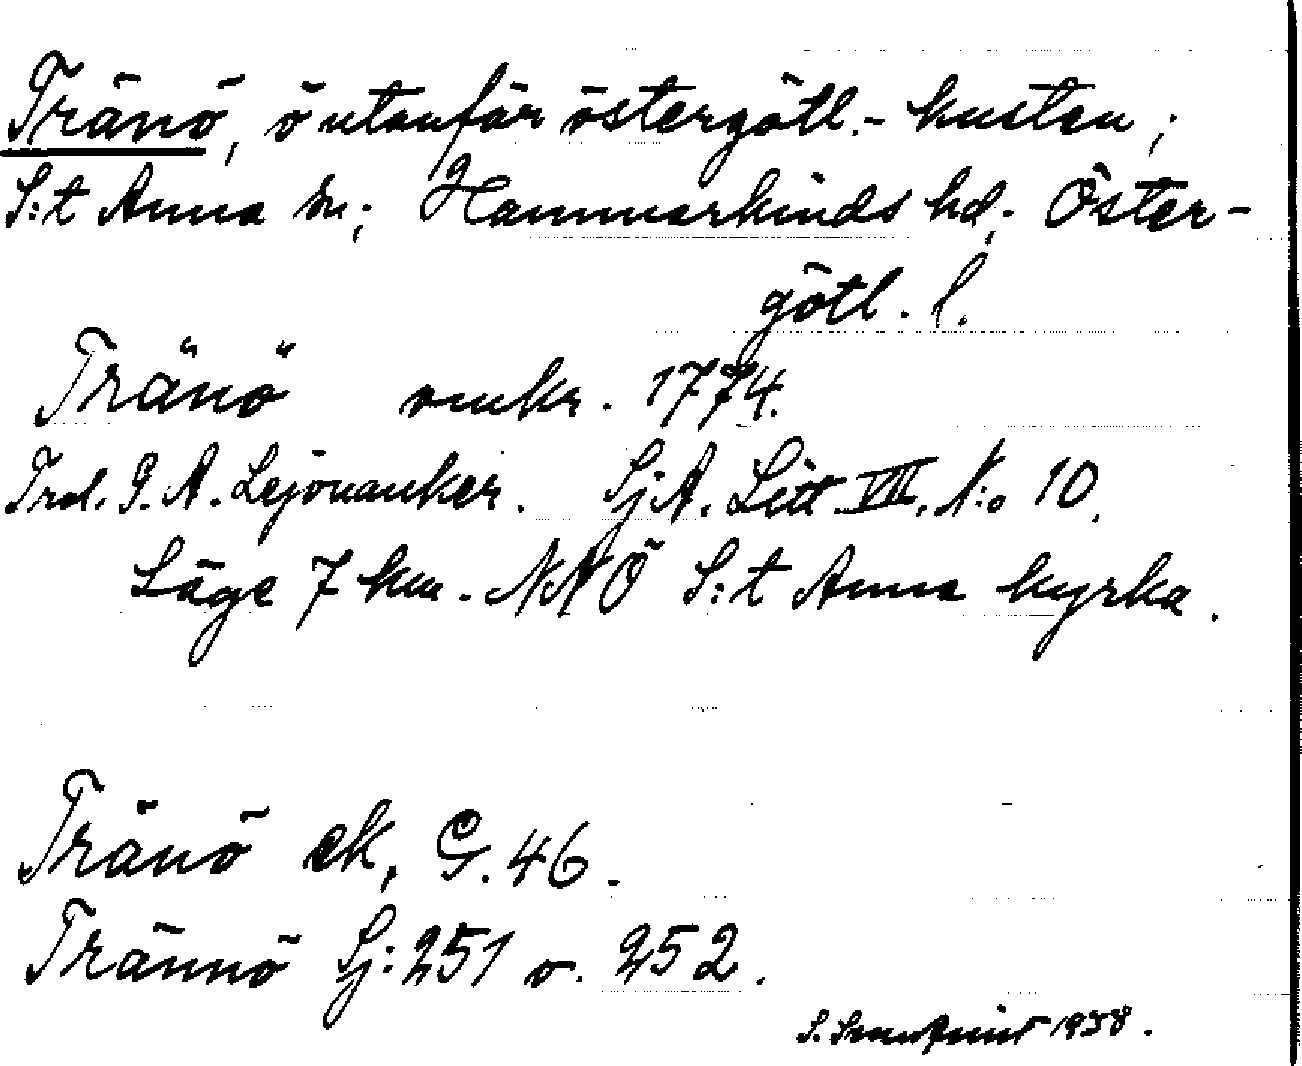 Tränö, ö utanför östergötl.- kusten;
S:t Anna sn; Hammarkinds hd; Öster-
götl. l.
Tränö omkr. 1774.
Trol. G. A. Lejonanker. SjA. Litt VII, N:o 10.
Läge 7 km. NNÖ S:t Anna kyrka.
Tränö ek, G. 46.
Trännö Sj: 251 o. 252.
S. 1938.